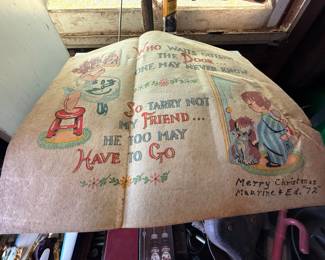 Who waits outside
the Door...
one may never know
So tarry not
my Friend...
he too may
Have to Go
Merry Christmas
Maurine & Ed. '72